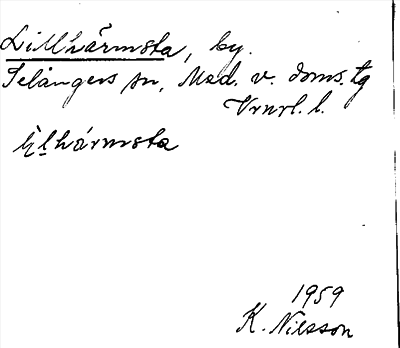 Lillhärmsta, by.
Selångers sn, Med. v. doms. tg
Vrnrl. l.
lįl̥hármsta
1959
K. Nilsson